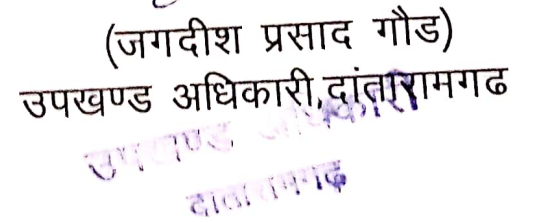 (जगदीश प्रसाद गौड)
उपखण्ड अधिकारी,दांतारामगढ
उपखण्ड अधिकारी
दांतारामगढ